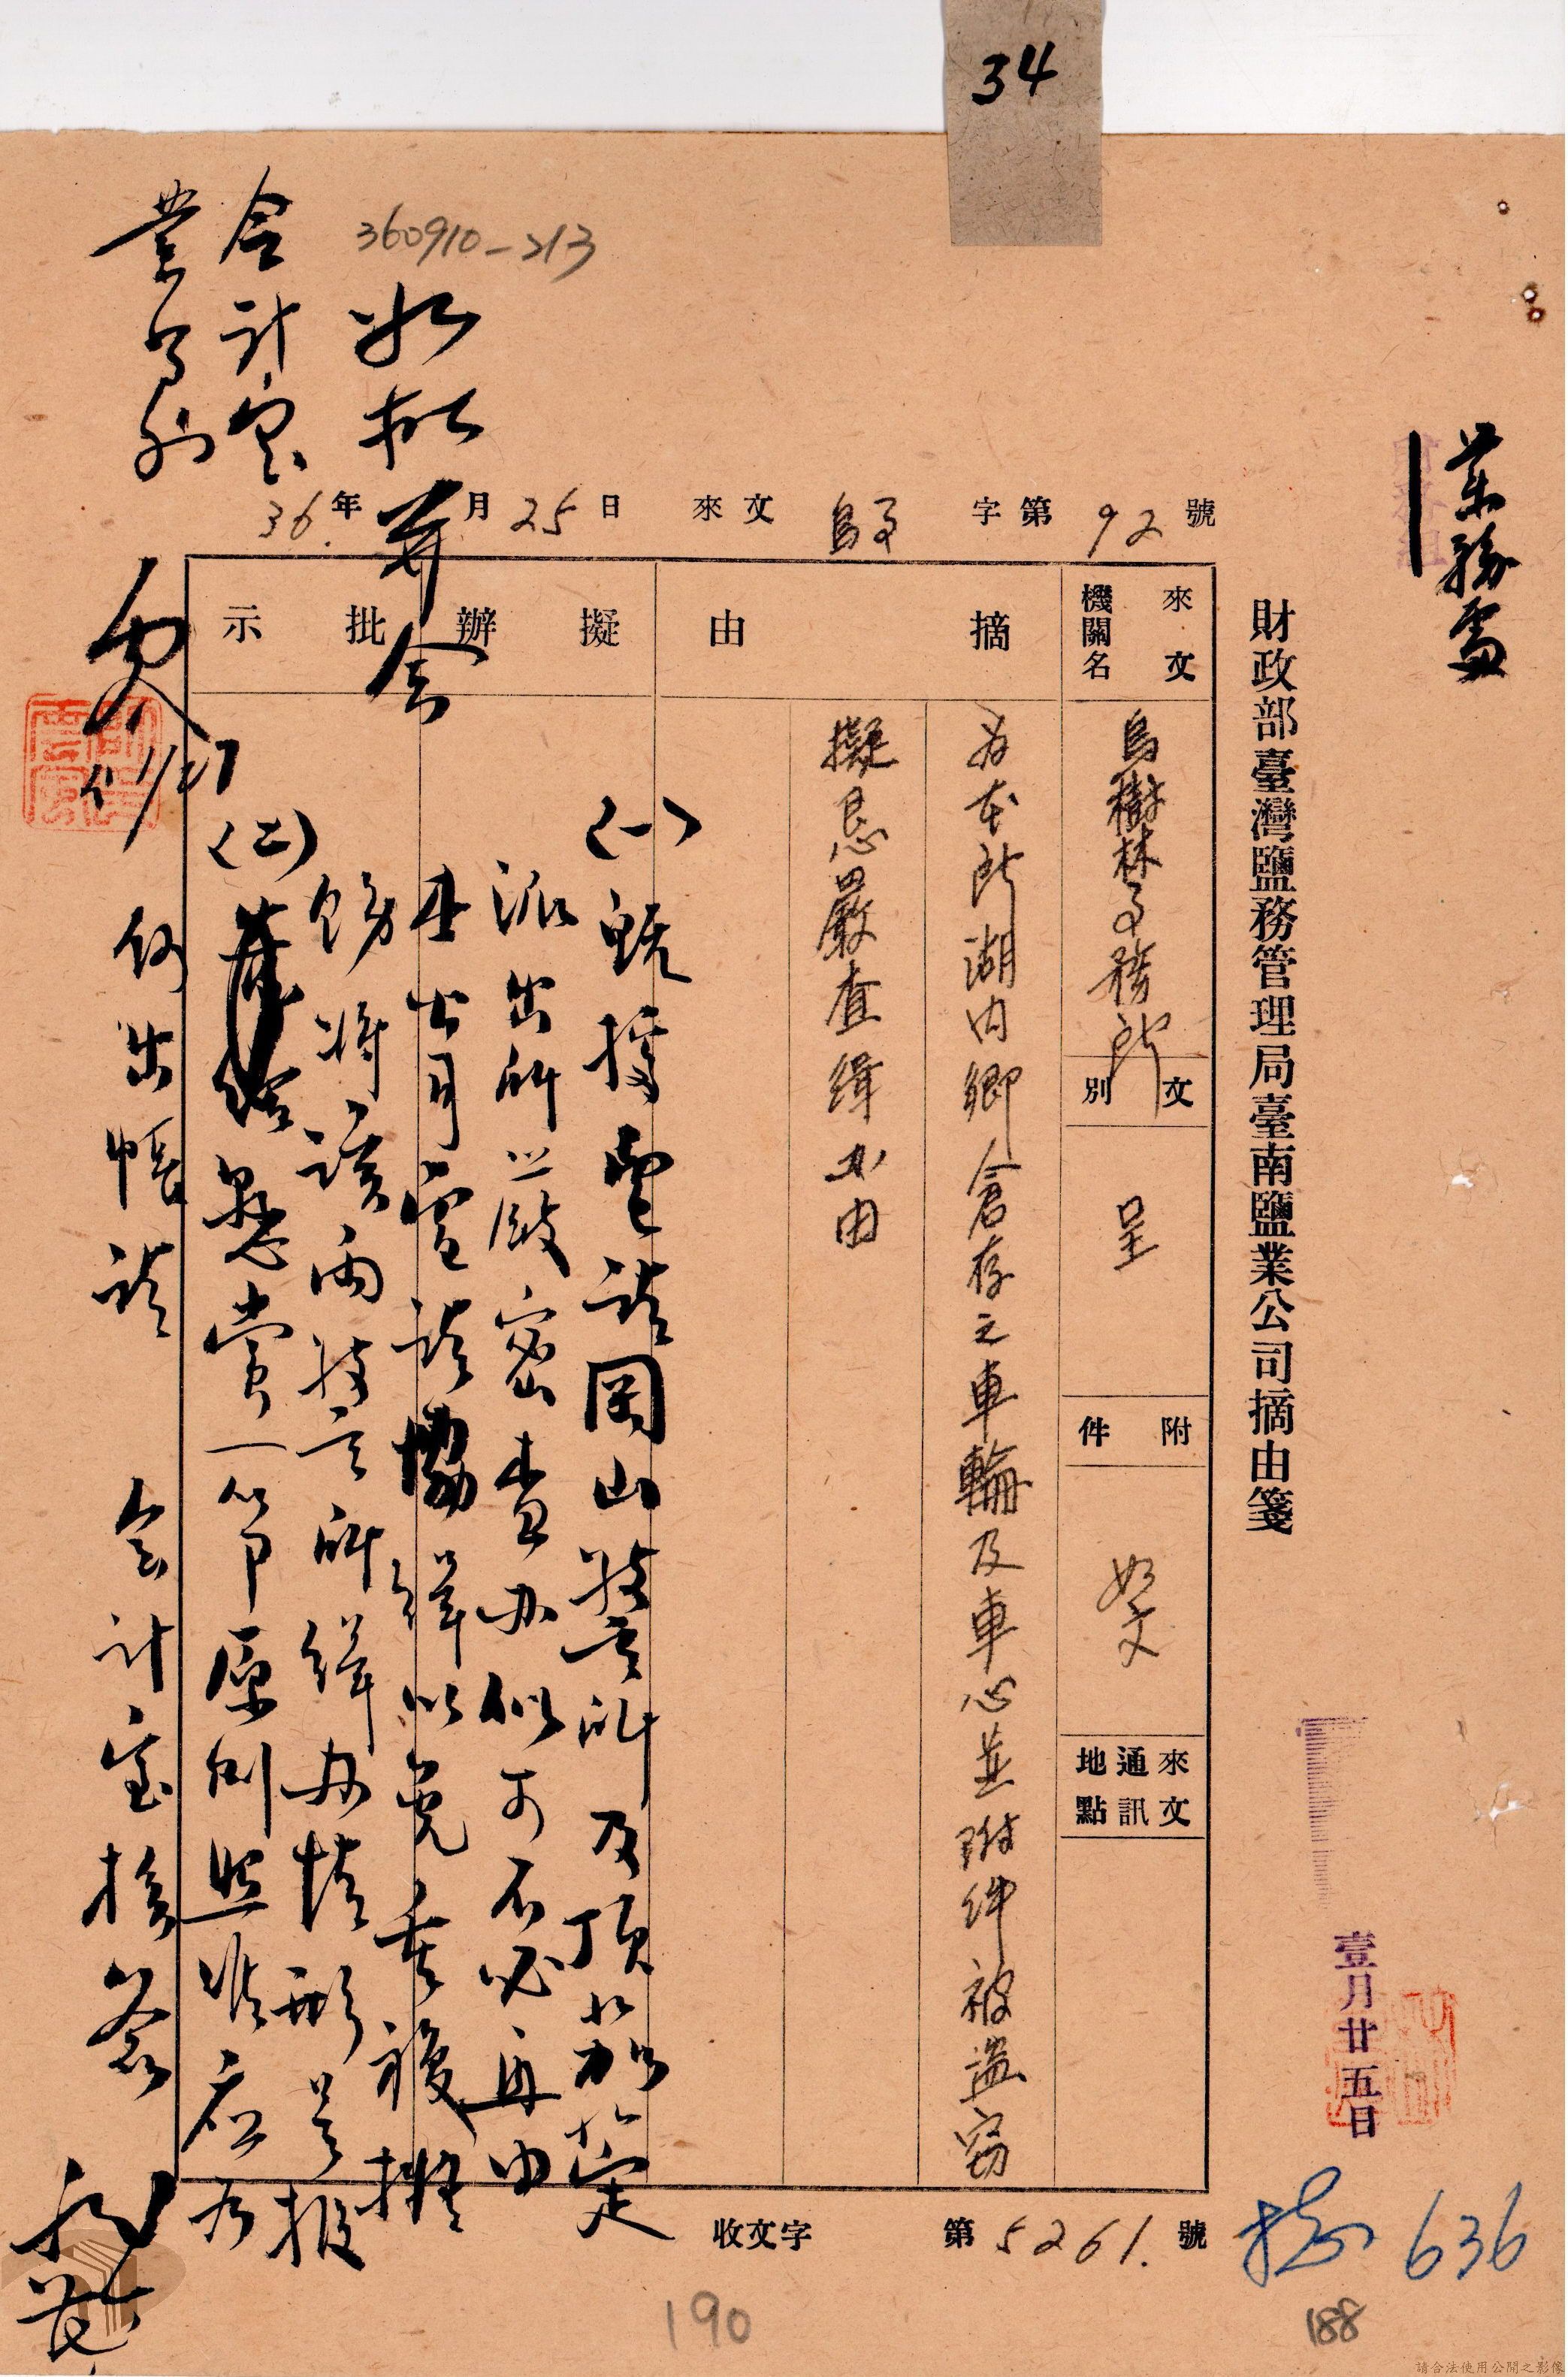 34
360910-213
業務處
財政部臺灣鹽務管理局臺南鹽業公司摘由箋
壹月廿五日
36.年 月25日 來文 烏 字第92號
來文機關名
烏樹林事務所
文別
呈
附件
如文
來文通訊地點
摘由
為本所湖內鄉倉存之車輪及車心並附件被盜竊
擬懇嚴查緝由
擬辦
批示
(一)既據電請岡山警所及頂茄萣
派出所嚴密查办似可不必再由
本公司電請協緝以免重複擬
飭將該兩警所緝办情形具報
(二)懸賞一節原則照准應如
何出帳請 会計室核簽
如擬
会計室
收文字第5261.號
636
190
188
請合法使用公開之影像